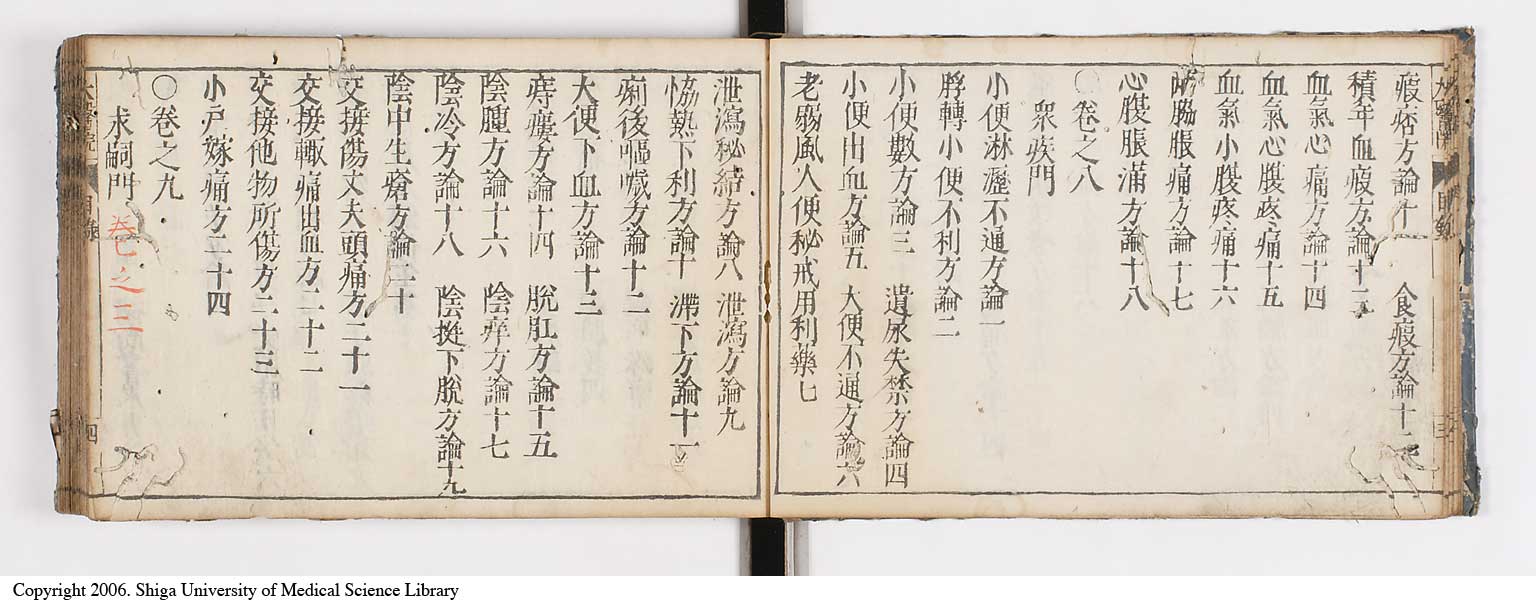 瘕痞方論十一　食癥方論十二
積年血癥方論十三
血氣心痛方論十四
血氣心腹疼痛十五
血氣小腹疼痛十六
兩脇脹痛方論十七
心腹脹滿方論十八
〇卷之八
衆疾門
小便淋瀝不通方論一
脬轉小便不利方論二
小便數方論三　遺尿失禁方論四
小便出血方論五　大便不通方論六
老弱風人便秘戒用利藥七
泄瀉秘結方論八　泄瀉方論九
恊熱下利方論十　滯下方論十一
痢後嘔噦方論十二
大便下血方論十三
痔瘻方論十四　脫肛方論十五
陰腫方論十六　陰痒方論十七
陰冷方論十八　陰挺下脫方論十九
陰中生瘡方論二十
交接傷丈夫頭痛方二十一
交接輙痛出血方二十二
交接他物所傷方二十三
小戶嫁痛方二十四
〇卷之九
求嗣門
卷之三
四
Copyright 2006. Shiga University of Medical Science Library